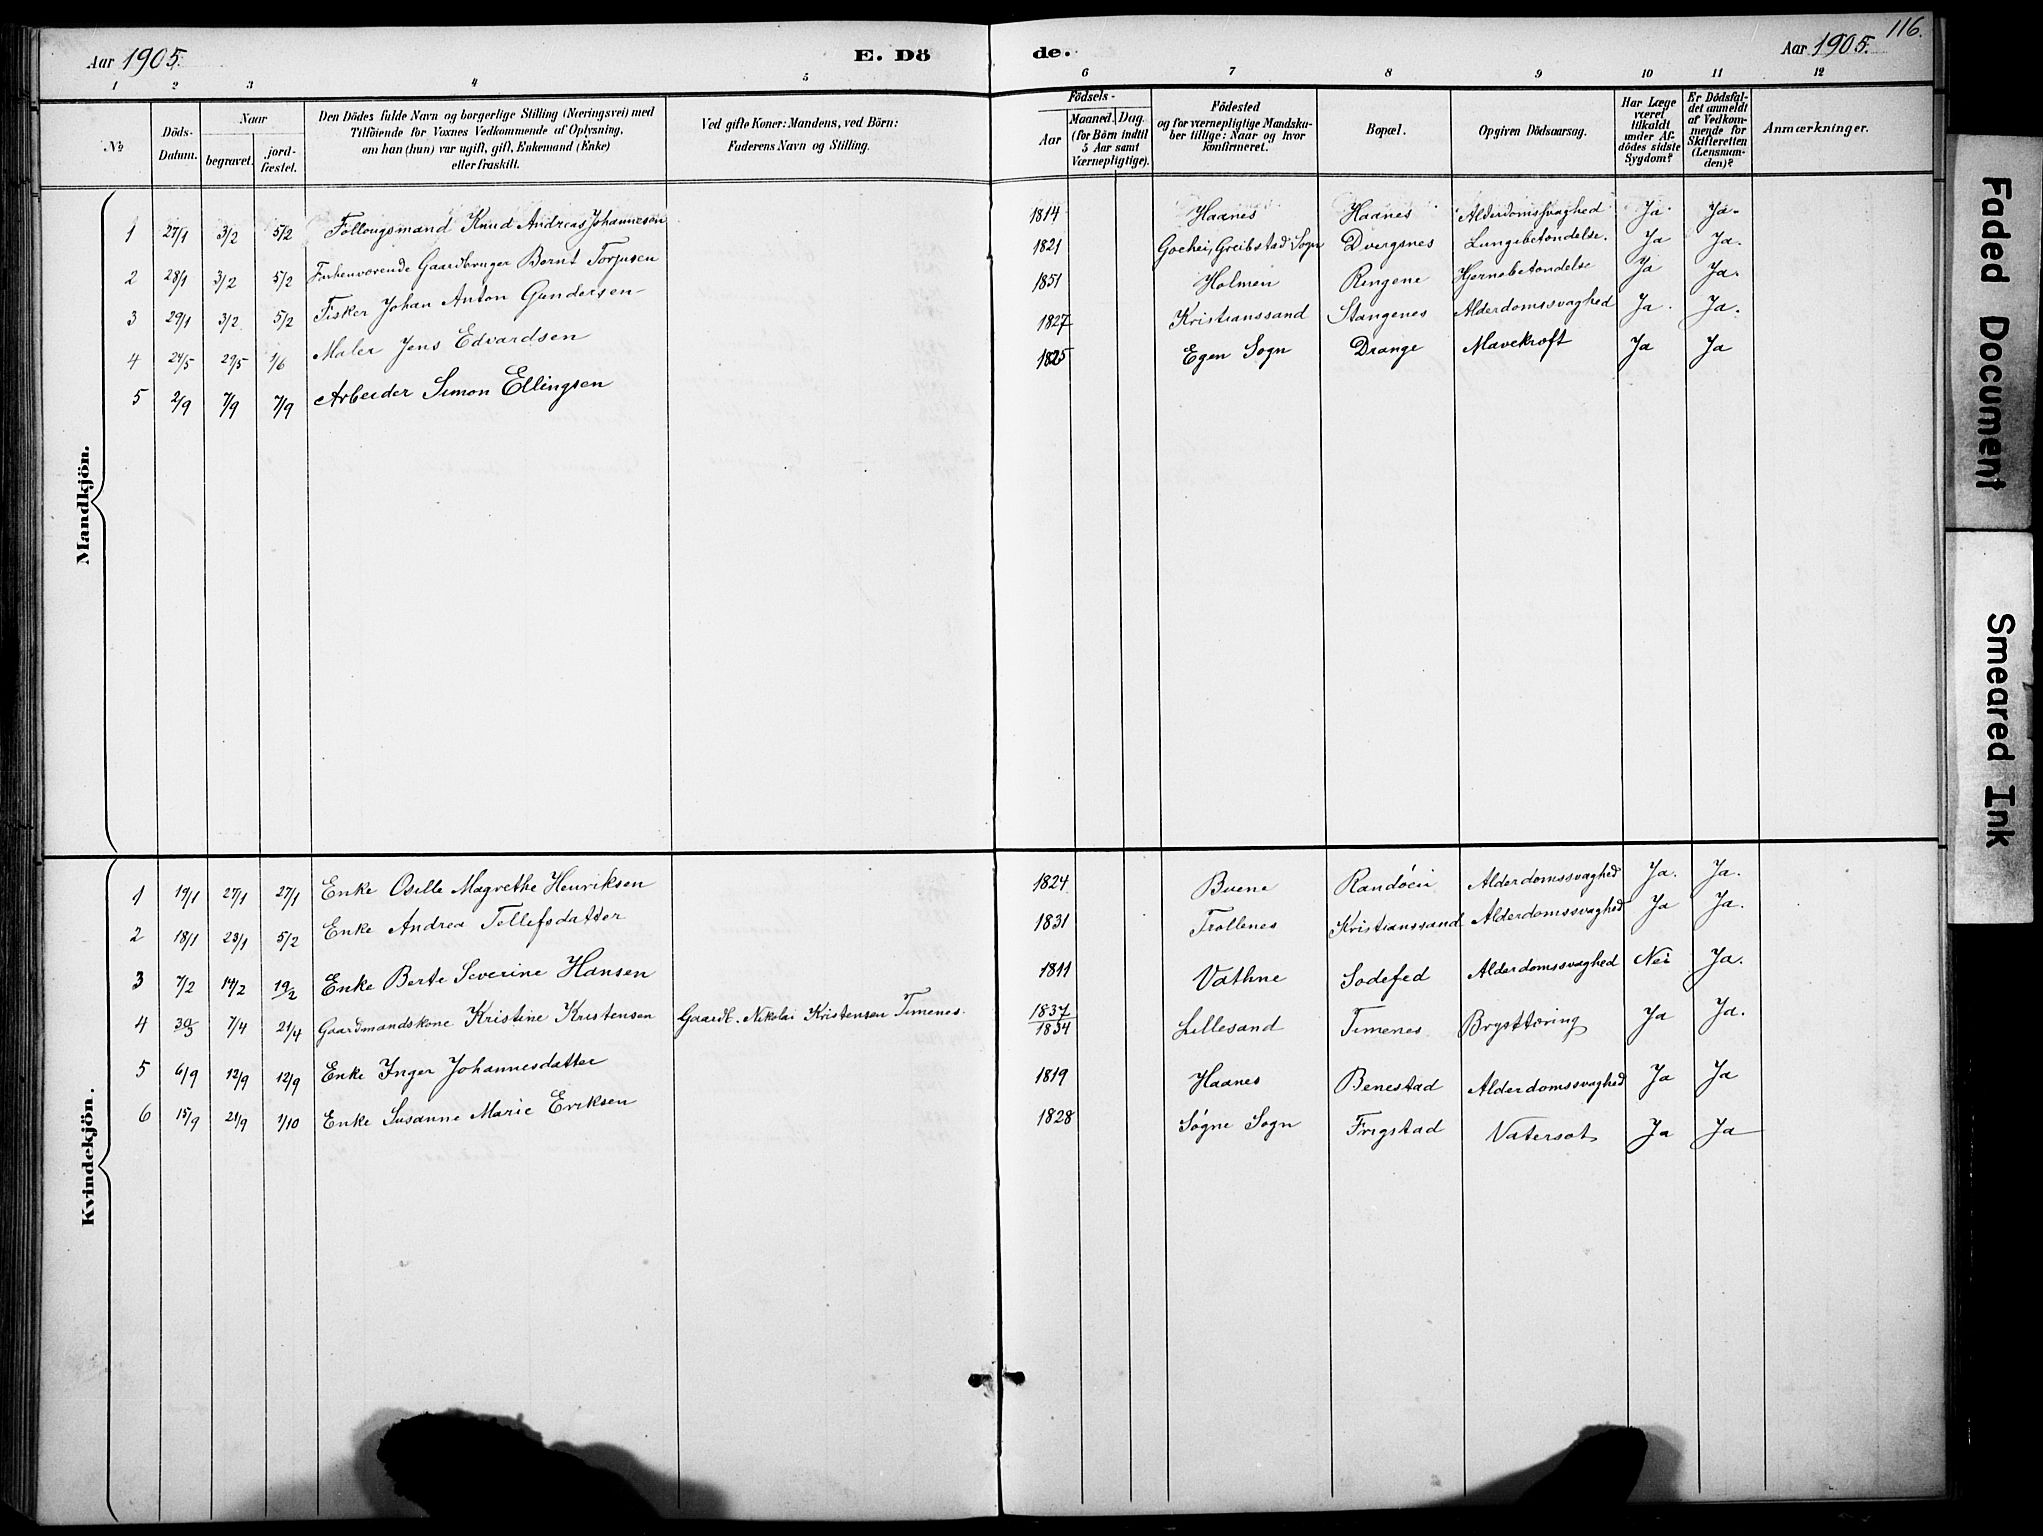 116.
Aar 1905. E. Dö de. Aar 1905.
1 2 3 4 5 6 7 8 9 10 11 12
No
Döds-Datum.
Naar
begravet.
jordfæstet.
Den Dödes fulde Navn og borgerlige Stilling (Næringsvei) med
Tilföiende for Voxnes Vedkommende af Oplysning,
om han (hun) var ugift, gift, Enkemand (Enke)
eller fraskilt.
Ved gifte Koner: Mandens, ved Börn:
Faderens Navn og Stilling.
Födsels-
Aar
Maaned. Dag.
(for Börn indtil
5 Aar samt
Værnepligtige).
Födested
og for værnepligtige Mandskaber tillige: Naar og hvor
konfirmeret.
Bopæl.
Opgiven Dödsaarsag.
Har Læge
været
tilkaldt
under Afdödes sidste
Sygdom?
Er Dödsfaldet anmeldt
af Vedkommende for
Skifteretten
(Lensmanden)?
Anmærkninger.
Mandkjön.
1 27/1 3/2 5/2 Follougsmand Knud Andreas Johannesen 1814 Haanes Haanes Alderdomssvaghed Ja Ja.
2 28/1 3/2 5/2 Forhenværende Gaardbruger Bernt Torjusen 1821 Greibstad Sogn Dvergsnes Lungebetændelse. Ja Ja.
3 29/1 3/2 5/2 Fisker Johan Anton Gundersen 1851 Holmen Ringene Hjernebetændelse Ja Ja.
4 24/5 29/5 1/6 Maler Jens Edvardsen 1827 Kristianssand Stangenes Alderdomssvaghed Ja. Ja.
5 2/9 7/9 7/9 Arbeider Simon Ellingsen 1825 Egen Sogn Drange Mavekræft Ja Ja
Kvindekjön.
1 19/1 27/1 27/1 Enke Oselle Magrethe Henriksen 1824 Buene Randöen Alderdomssvaghed Ja. Ja.
2 18/1 23/1 5/2 Enke Andrea Tellefsdatter 1831 Trollenes Kristianssand Alderdomssvaghed Ja Ja.
3 7/2 14/2 19/2 Enke Berte Severine Hansen 1811 Vathne Sodefed Alderdomssvaghed Nei Ja.
4 30/3 7/4 21/4 Gaardmandskone Kristine Kristensen Gaardb. Nikolai Kristensen Timenes. 1837 1834 Lillesand Timenes Brysttæring Ja Ja.
5 6/9 12/9 12/9 Enke Inger Johannesdatter 1819 Haanes Benestad Alderdomssvaghed Ja Ja
6 15/9 21/9 1/10 Enke Susanne Marie Eriksen 1828 Søgne Sogn Frigstad Vatersot Ja Ja
Faded Document
Smeared Ink